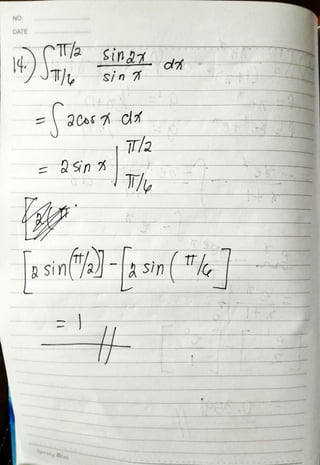 NO.
DATE
14.) ∫ π/2 π/6 sin2x / sin x dx
= ∫ 2cos x dx
= 2 sin x | π/2 π/6
[2 sin(π/2)] - [2 sin ( π/6 ]
= 1 //